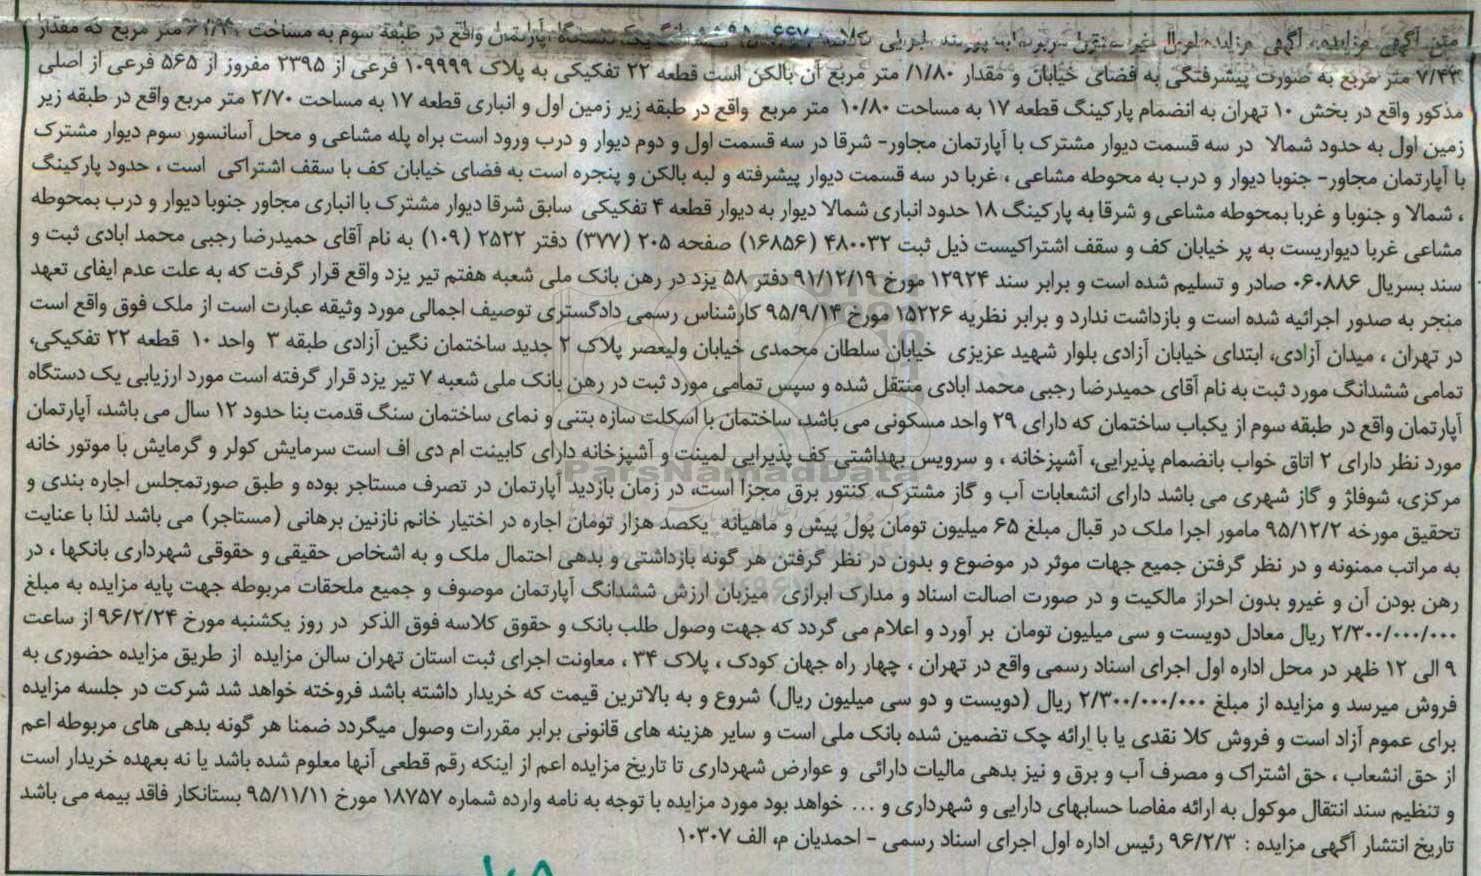 متن آگهی مزایده، آگهی مزایده اموال غیر منقول ششدانگ یک دستگاه آپارتمان واقع در طبقه سوم به مساحت متر مربع که مقدار
۷/۴۳ متر مربع به صورت پیشرفتگی به فضای خیابان و مقدار ۱/۸۰/ متر مربع آن بالکن است قطعه ۲۲ تفکیکی به پلاک ۱۰۹۹۹۹ فرعی از ۲۳۹۵ مفروز از ۵۶۵ فرعی از اصلی
مذکور واقع در بخش ۱۰ تهران به انضمام پارکینگ قطعه ۱۷ به مساحت ۱۰/۸۰ متر مربع واقع در طبقه زیر زمین اول و انباری قطعه ۱۷ به مساحت ۲/۷۰ متر مربع واقع در طبقه زیر
زمین اول به حدود شمالا در سه قسمت دیوار مشترک با آپارتمان مجاور- شرقا در سه قسمت اول و دوم دیوار و درب ورود است براه پله مشاعی و محل آسانسور سوم دیوار مشترک
با آپارتمان مجاور- جنوبا دیوار و درب به محوطه مشاعی ، غربا در سه قسمت دیوار پیشرفته و لبه بالکن و پنجره است به فضای خیابان کف با سقف اشتراکی است ، حدود پارکینگ
، شمالا و جنوبا و غربا بمحوطه مشاعی و شرقا به پارکینگ ۱۸ حدود انباری شمالا دیوار به دیوار قطعه ۴ تفکیکی سابق شرقا دیوار مشترک با انباری مجاور جنوبا دیوار و درب بمحوطه
مشاعی غربا دیواریست به پر خیابان کف و سقف اشتراکیست ذیل ثبت ۴۸۰۰۳۲ (۱۶۸۵۶) صفحه ۲۰۵ (۳۷۷) دفتر ۲۵۲۲ (۱۰۹) به نام آقای حمیدرضا رجبی محمد ابادی ثبت و
سند بسریال ۰۶۰۸۸۶ صادر و تسلیم شده است و برابر سند ۱۲۹۲۴ مورخ ۹۱/۱۲/۱۹ دفتر ۵۸ یزد در رهن بانک ملی شعبه هفتم تیر یزد واقع قرار گرفت که به علت عدم ایفای تعهد
منجر به صدور اجرائیه شده است و بازداشت ندارد و برابر نظریه ۱۵۲۲۶ مورخ ۹۵/۹/۱۴ کارشناس رسمی دادگستری توصیف اجمالی مورد وثیقه عبارت است از ملک فوق واقع است
در تهران ، میدان آزادی، ابتدای خیابان آزادی بلوار شهید عزیزی خیابان سلطان محمدی خیابان ولیعصر پلاک ۲ جدید ساختمان نگین آزادی طبقه ۳ واحد ۱۰ قطعه ۲۲ تفکیکی،
تمامی ششدانگ مورد ثبت به نام آقای حمیدرضا رجبی محمد ابادی منتقل شده و سپس تمامی مورد ثبت در رهن بانک ملی شعبه ۷ تیر یزد قرار گرفته است مورد ارزیابی یک دستگاه
آپارتمان واقع در طبقه سوم از یکباب ساختمان که دارای ۲۹ واحد مسکونی می باشد، ساختمان با اسکلت سازه بتنی و نمای ساختمان سنگ قدمت بنا حدود ۱۲ سال می باشد، آپارتمان
مورد نظر دارای ۲ اتاق خواب بانضمام پذیرایی، آشپزخانه ، و سرویس بهداشتی کف پذیرایی لمینت و آشپزخانه دارای کابینت ام دی اف است سرمایش کولر و گرمایش با موتور خانه
مرکزی، شوفاژ و گاز شهری می باشد دارای انشعابات آب و گاز مشترک، کنتور برق مجزا است، در زمان بازدید آپارتمان در تصرف مستاجر بوده و طبق صورتمجلس اجاره بندی و
تحقیق مورخه ۹۵/۱۲/۲ مامور اجرا ملک در قبال مبلغ ۶۵ میلیون تومان پول پیش و ماهیانه یکصد هزار تومان اجاره در اختیار خانم نازنین برهانی (مستاجر) می باشد لذا با عنایت
به مراتب ممنونه و در نظر گرفتن جمیع جهات موثر در موضوع و بدون در نظر گرفتن هر گونه بازداشتی و بدهی احتمال ملک و به اشخاص حقیقی و حقوقی شهرداری بانکها ، در
رهن بودن آن و غیرو بدون احراز مالکیت و در صورت اصالت اسناد و مدارک ابرازی میزبان ارزش ششدانگ آپارتمان موصوف و جمیع ملحقات مربوطه جهت پایه مزایده به مبلغ
۲/۳۰۰/۰۰۰/۰۰۰ ریال معادل دویست و سی میلیون تومان بر آورد و اعلام می گردد که جهت وصول طلب بانک و حقوق کلاسه فوق الذکر در روز یکشنبه مورخ ۹۶/۲/۲۴ از ساعت
۹ الی ۱۲ ظهر در محل اداره اول اجرای اسناد رسمی واقع در تهران ، چهار راه جهان کودک ، پلاک ۳۴ ، معاونت اجرای ثبت استان تهران سالن مزایده از طریق مزایده حضوری به
فروش میرسد و مزایده از مبلغ ۲/۳۰۰/۰۰۰/۰۰۰ ریال (دویست و دو سی میلیون ریال) شروع و به بالاترین قیمت که خریدار داشته باشد فروخته خواهد شد شرکت در جلسه مزایده
برای عموم آزاد است و فروش کلا نقدی یا با ارائه چک تضمین شده بانک ملی است و سایر هزینه های قانونی برابر مقررات وصول میگردد ضمنا هر گونه بدهی های مربوطه اعم
از حق انشعاب ، حق اشتراک و مصرف آب و برق و نیز بدهی مالیات دارائی و عوارض شهرداری تا تاریخ مزایده اعم از اینکه رقم قطعی آنها معلوم شده باشد یا نه بعهده خریدار است
و تنظیم سند انتقال موکول به ارائه مفاصا حسابهای دارایی و شهرداری و ... خواهد بود مورد مزایده با توجه به نامه وارده شماره ۱۸۷۵۷ مورخ ۹۵/۱۱/۱۱ بستانکار فاقد بیمه می باشد
تاریخ انتشار آگهی مزایده : ۹۶/۲/۳ رئیس اداره اول اجرای اسناد رسمی - احمدیان م، الف ۱۰۳۰۷
ParsNamadData